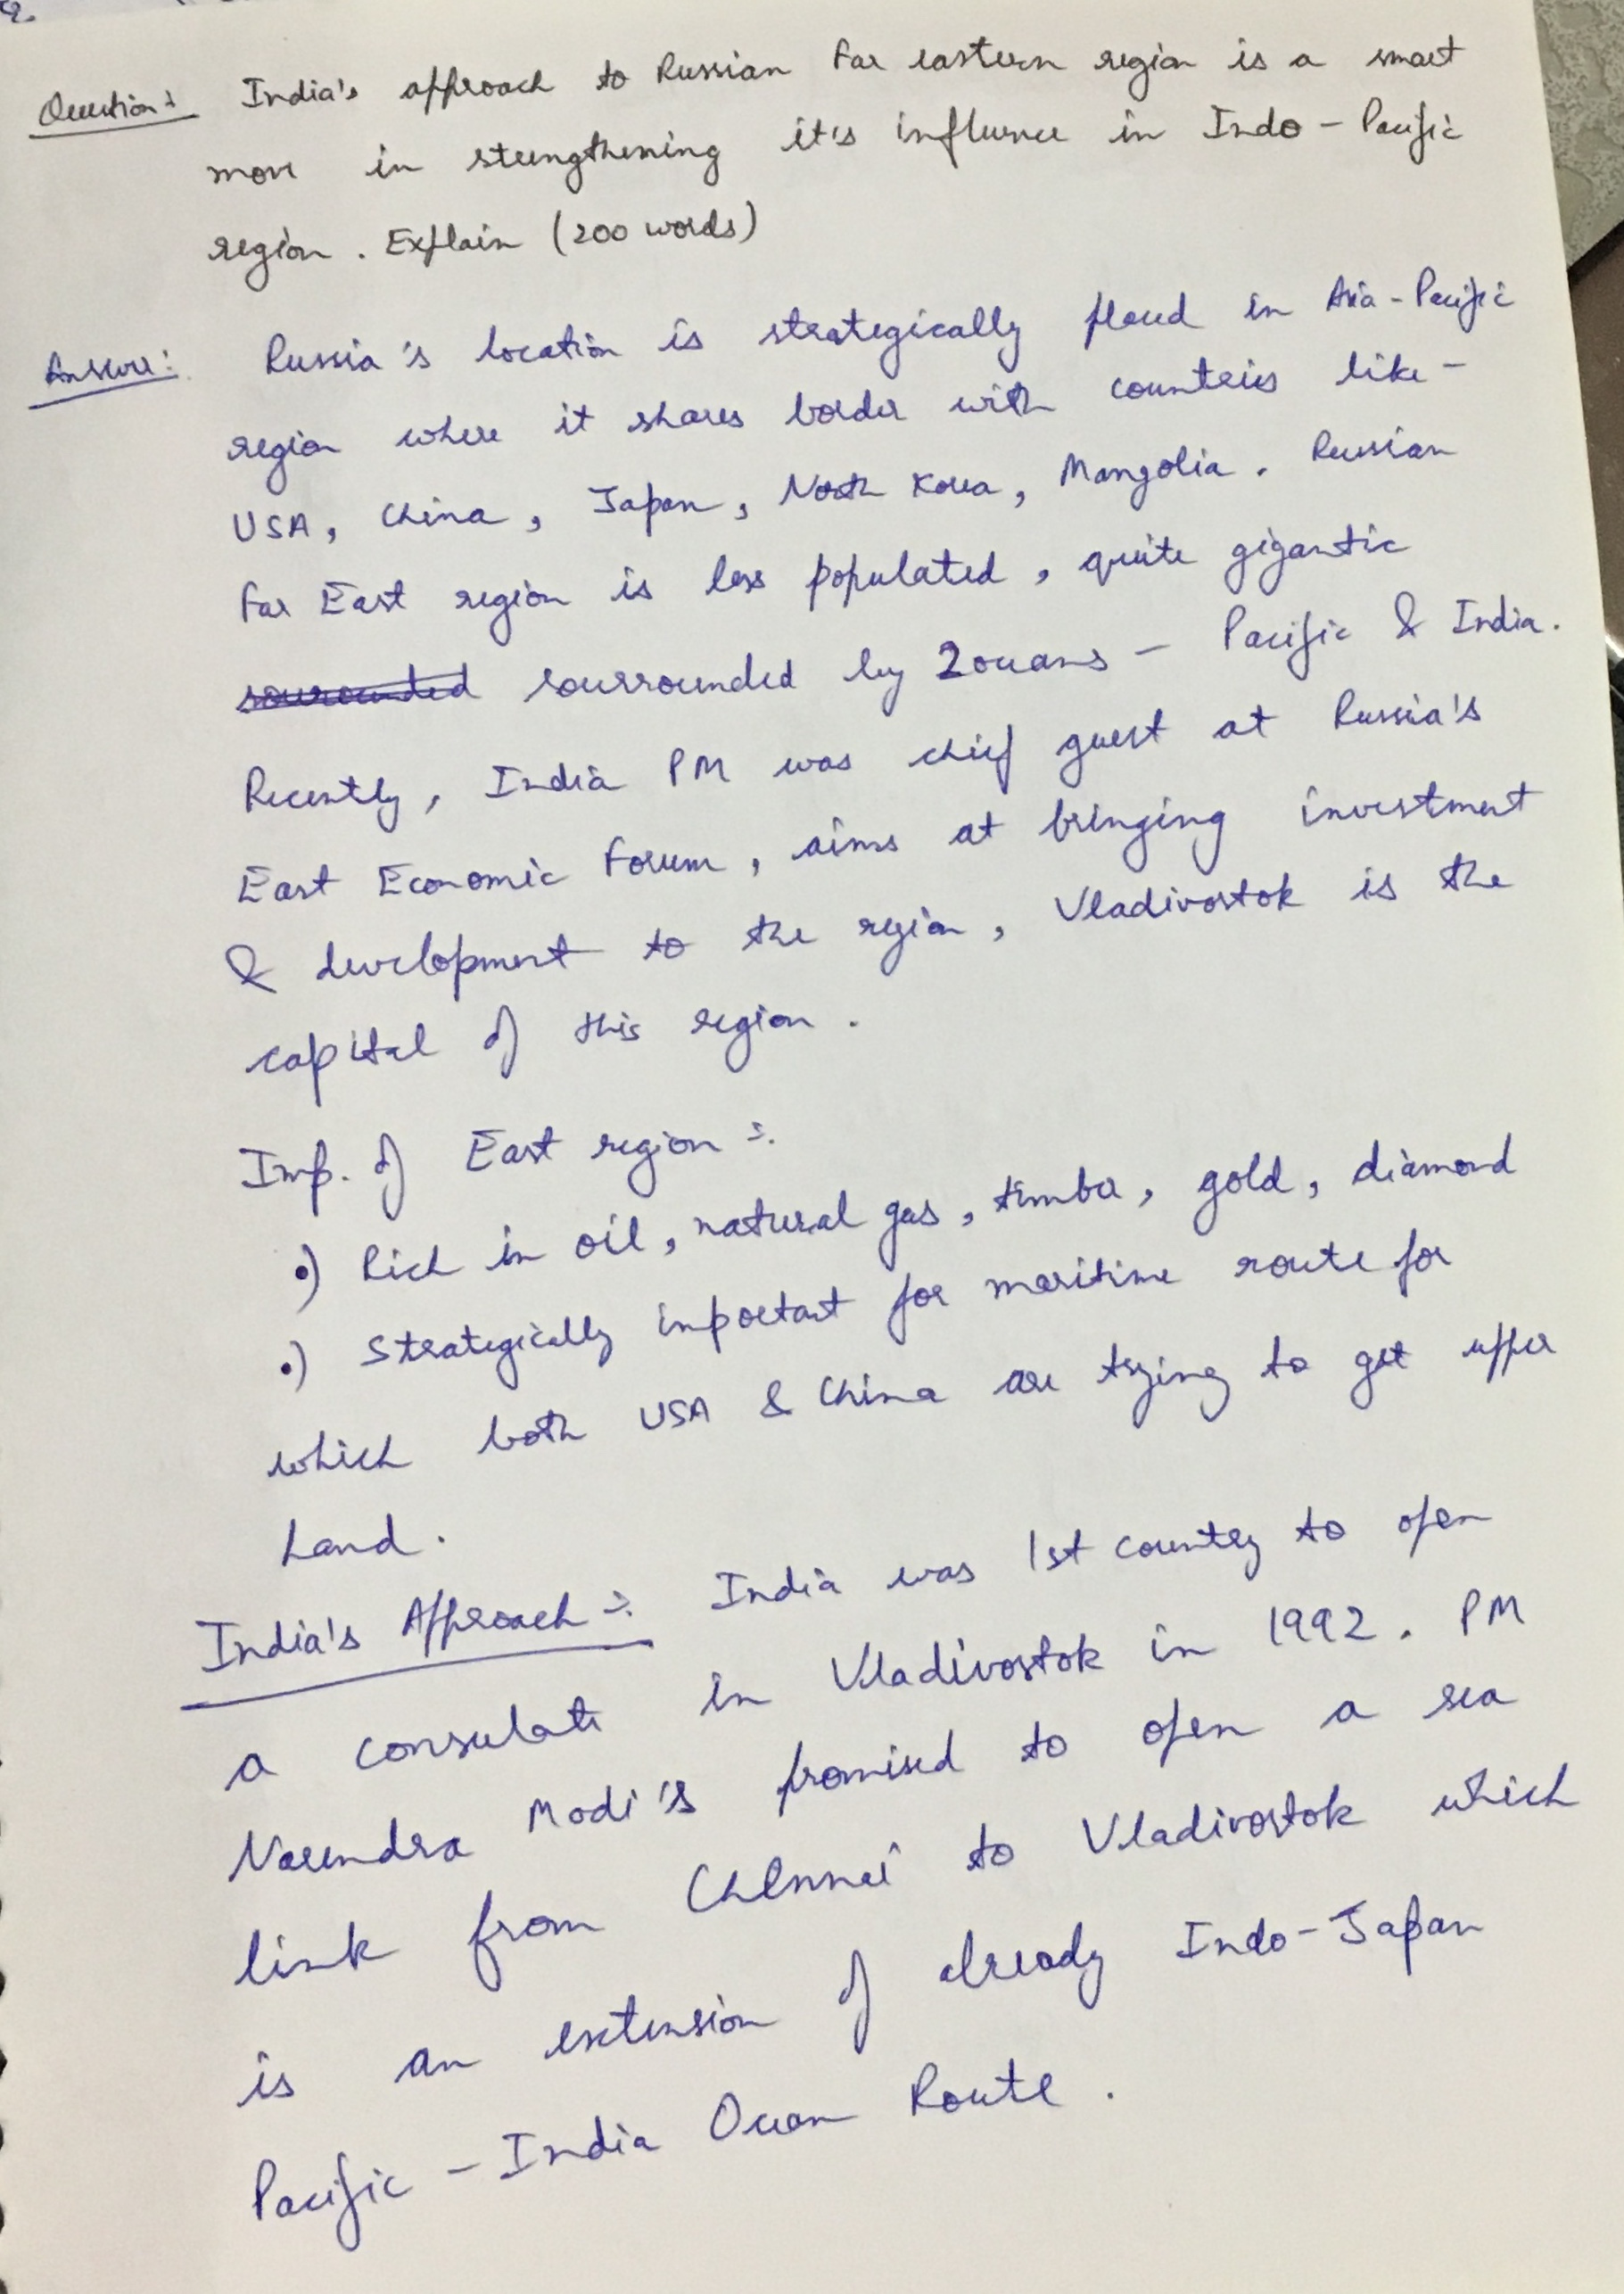 Question :- India's approach to Russian Far eastern region is a smart
move in strengthening it's influence in Indo - Pacific
region . Explain (200 words)
Answer :- Russia's location is strategically placed in Asia - Pacific
region where it shares border with countries like -
USA, China , Japan , North Korea , Mangolia . Russian
Far East region is less populated , quite gigantic
sourounded sourrounded by 2 oceans - Pacific & India .
Recently , India PM was chief guest at Russia's
East Economic Forum , aims at bringing investment
& development to the region , Vladivostok is the
capital of this region .
Imp. of East region :-
•) Rich in oil, natural gas, timber, gold, diamond
•) Strategically important for maritime route for
which both USA & China are trying to get upper
hand .
India's Approach :- India was 1st country to open
a consulate in Vladivostok in 1992 . PM
Narendra Modi's promised to open a sea
link from Chennai to Vladivostok which
is an extension of already Indo - Japan
Pacific - India Ocean Route .